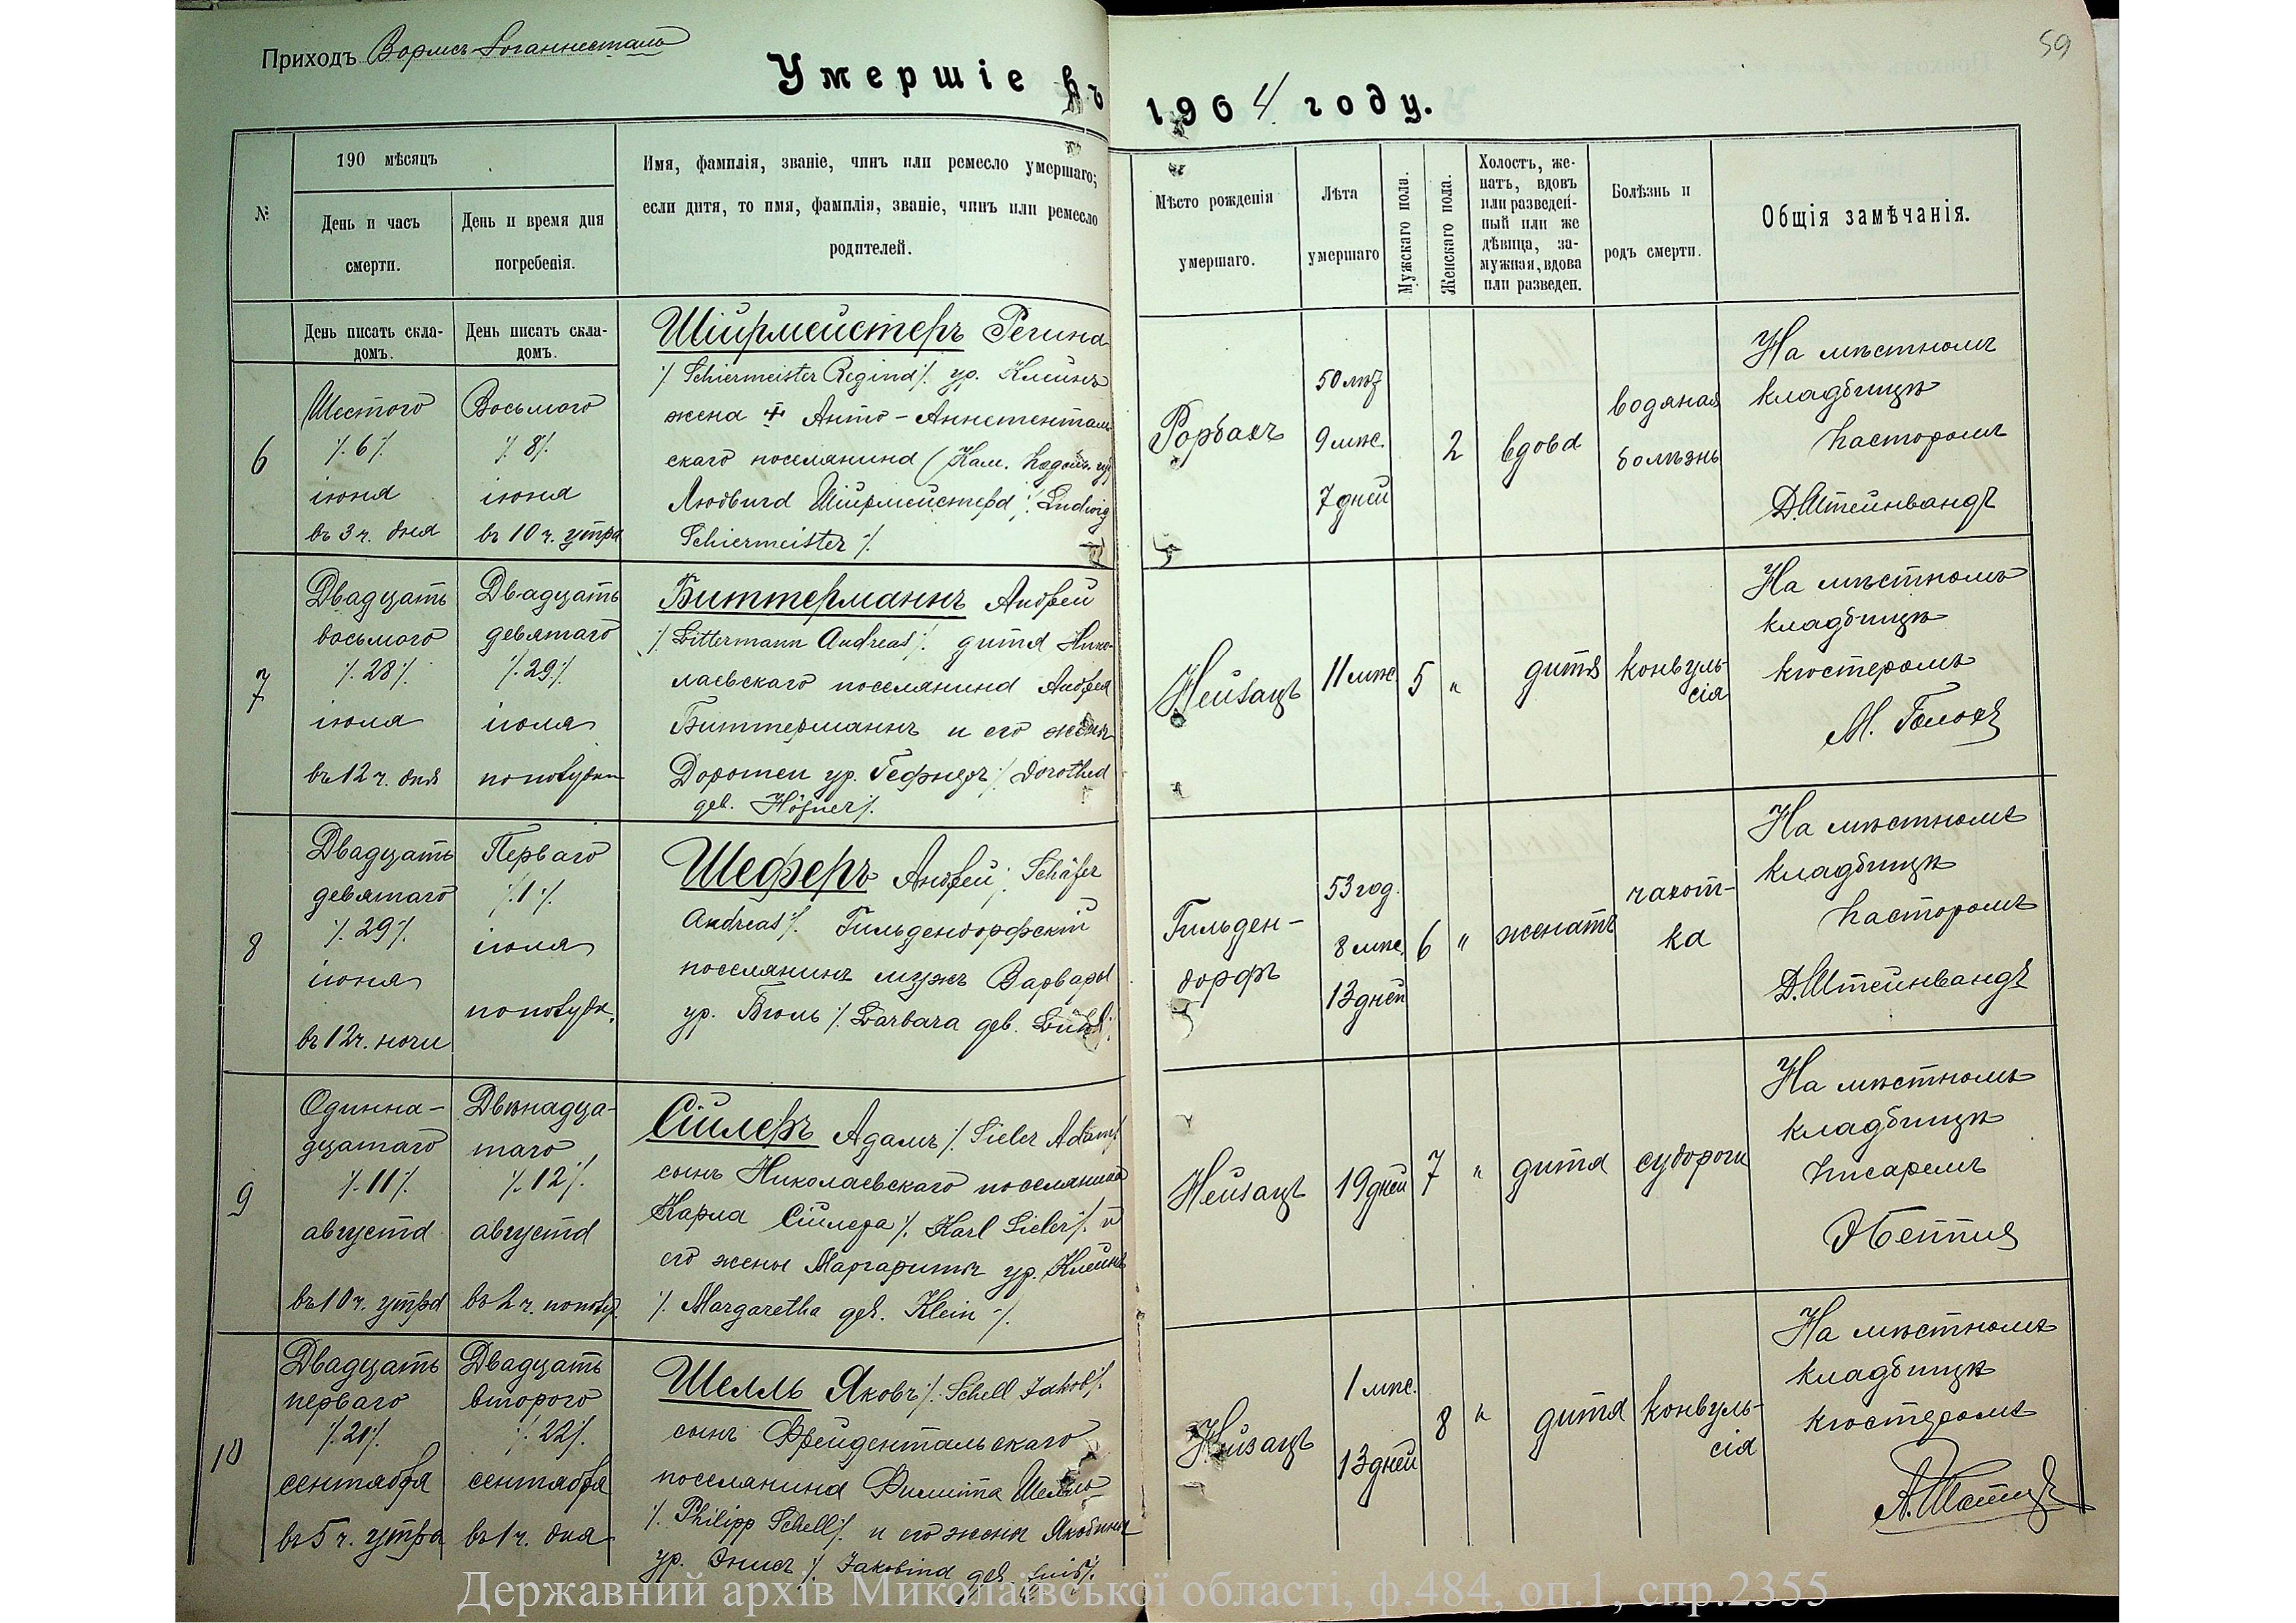 Приходъ Вормсъ-Іоганнесталь
59
Умершіе въ 1904 году.
№
190 мѣсяцъ
День и часъ смерти.
День и время дня погребенія.
Имя, фамилія, званіе, чинъ или ремесло умершаго;
если дитя, то имя, фамилія, званіе, чинъ или ремесло
родителей.
Мѣсто рожденія умершаго.
Лѣта умершаго
Мужскаго пола.
Женскаго пола.
Холостъ, же-
натъ, вдовъ
или разведен-
ный или же
дѣвица, за-
мужная, вдова
или разведен.
Болѣзнь и родъ смерти.
Общія замѣчанія.
День писать скла-
домъ.
День писать скла-
домъ.
6
Шестого
/. 6 /.
іюня
въ 3 ч. дня
Восьмого
/. 8 /.
іюня
въ 10 ч. утра
Шійрмейстеръ Регина
/. Schiermeister Regina /. ур. Клейнъ
жена † Анто-Аннетенталь
скаго поселянина (Кам.
Людвига Шійрмейстера /. Ludwig
Schiermeister /.
Рорбахъ
50 лѣт
9 мѣс.
7 дней
2
вдова
водяная
болѣзнь
На мѣстномъ
кладбищѣ
пасторомъ
Д. Штейнвандъ
7
Двадцать
восьмого
/. 28 /.
іюля
въ 12 ч. дня
Двадцать
девятаго
/. 29 /.
іюля
пополудни
Биттерманнъ Андрей
/. Bittermann Andreas /. дитя Нико-
лаевскаго поселянина Андрея
Биттерманнъ и его жены
Доротеи ур. Гефнеръ /. Dorothea
geb. Höfner /.
Нейзацъ
11 мѣс
5
"
дитя
конвуль-
сія
На мѣстномъ
кладбищѣ
кюстеромъ
М.
8
Двадцать
девятаго
/. 29 /.
іюня
въ 12 ч. ночи
Перваго
/. 1 /.
іюля
пополудн.
Шеферъ Андрей /. Schäfer
Andreas /. Гильдендорфскій
поселянинъ мужъ Варвары
ур. Бюль /. Barbara geb.
Гильден-
дорфъ
53 год.
8 мѣс.
13 дней
6
"
женатъ
чахот-
ка
На мѣстномъ
кладбищѣ
пасторомъ
Д. Штейнвандъ
9
Одинна-
дцатаго
/. 11 /.
августа
въ 10 ч. утра
Двѣнадца-
таго
/. 12 /.
августа
въ 2 ч. пополуд.
Сійлеръ Адамъ /. Sieler Adam /.
сынъ Николаевскаго поселянина
Карла Сійлера /. Karl Sieler /. и
его жены Маргариты ур. Клейнъ
/. Margaretha geb. Klein /.
Нейзацъ
19 дней
7
"
дитя
судороги
На мѣстномъ
кладбищѣ
писаремъ
10
Двадцать
перваго
/. 21 /.
сентября
въ 5 ч. утра
Двадцать
второго
/. 22 /.
сентября
въ 1 ч. дня
Шелль Яковъ /. Schell Jakob /.
сынъ Фрейдентальскаго
поселянина Филиппа Шелль
/. Philipp Schell /. и его жены Якобины
ур. /. Jakobina geb.
Нейзацъ
1 мѣс.
13 дней
8
"
дитя
конвуль-
сія
На мѣстномъ
кладбищѣ
кюстеромъ
Державний архів Миколаївської області, ф.484, оп.1, спр.2355